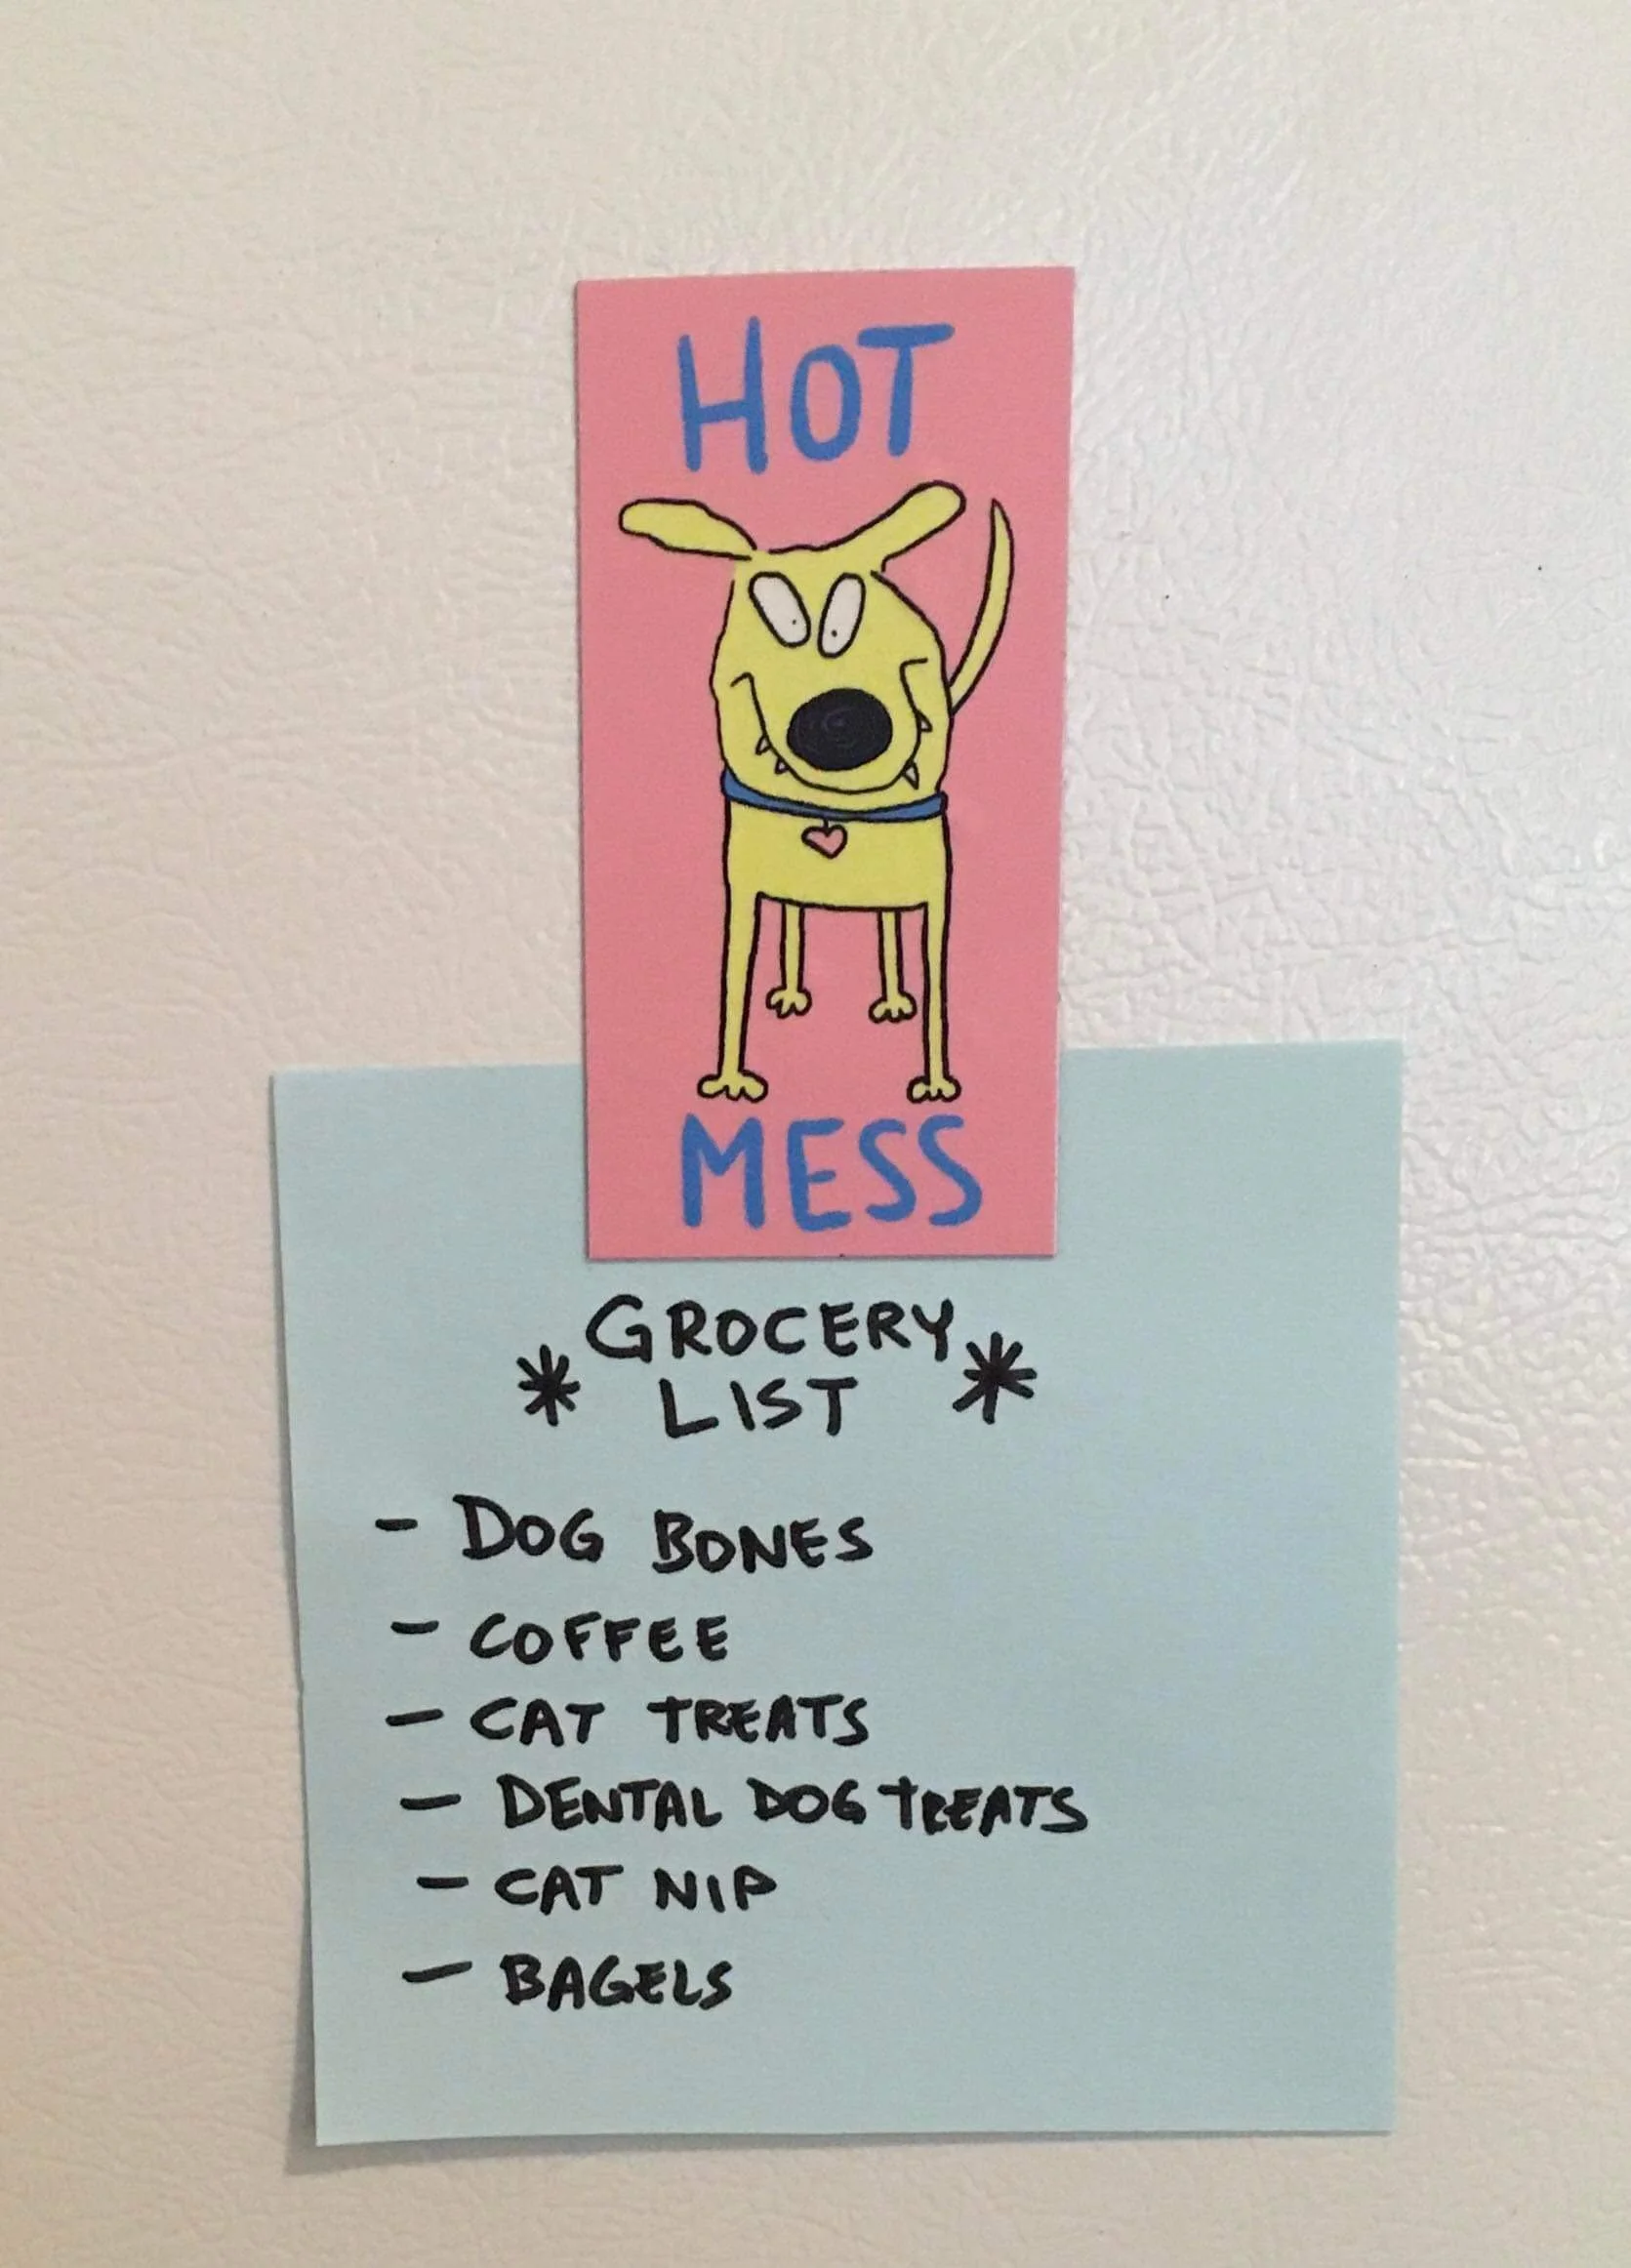 HOT
MESS
* GROCERY *
LIST
- DOG BONES
- COFFEE
- CAT TREATS
- DENTAL DOG TREATS
- CAT NIP
- BAGELS